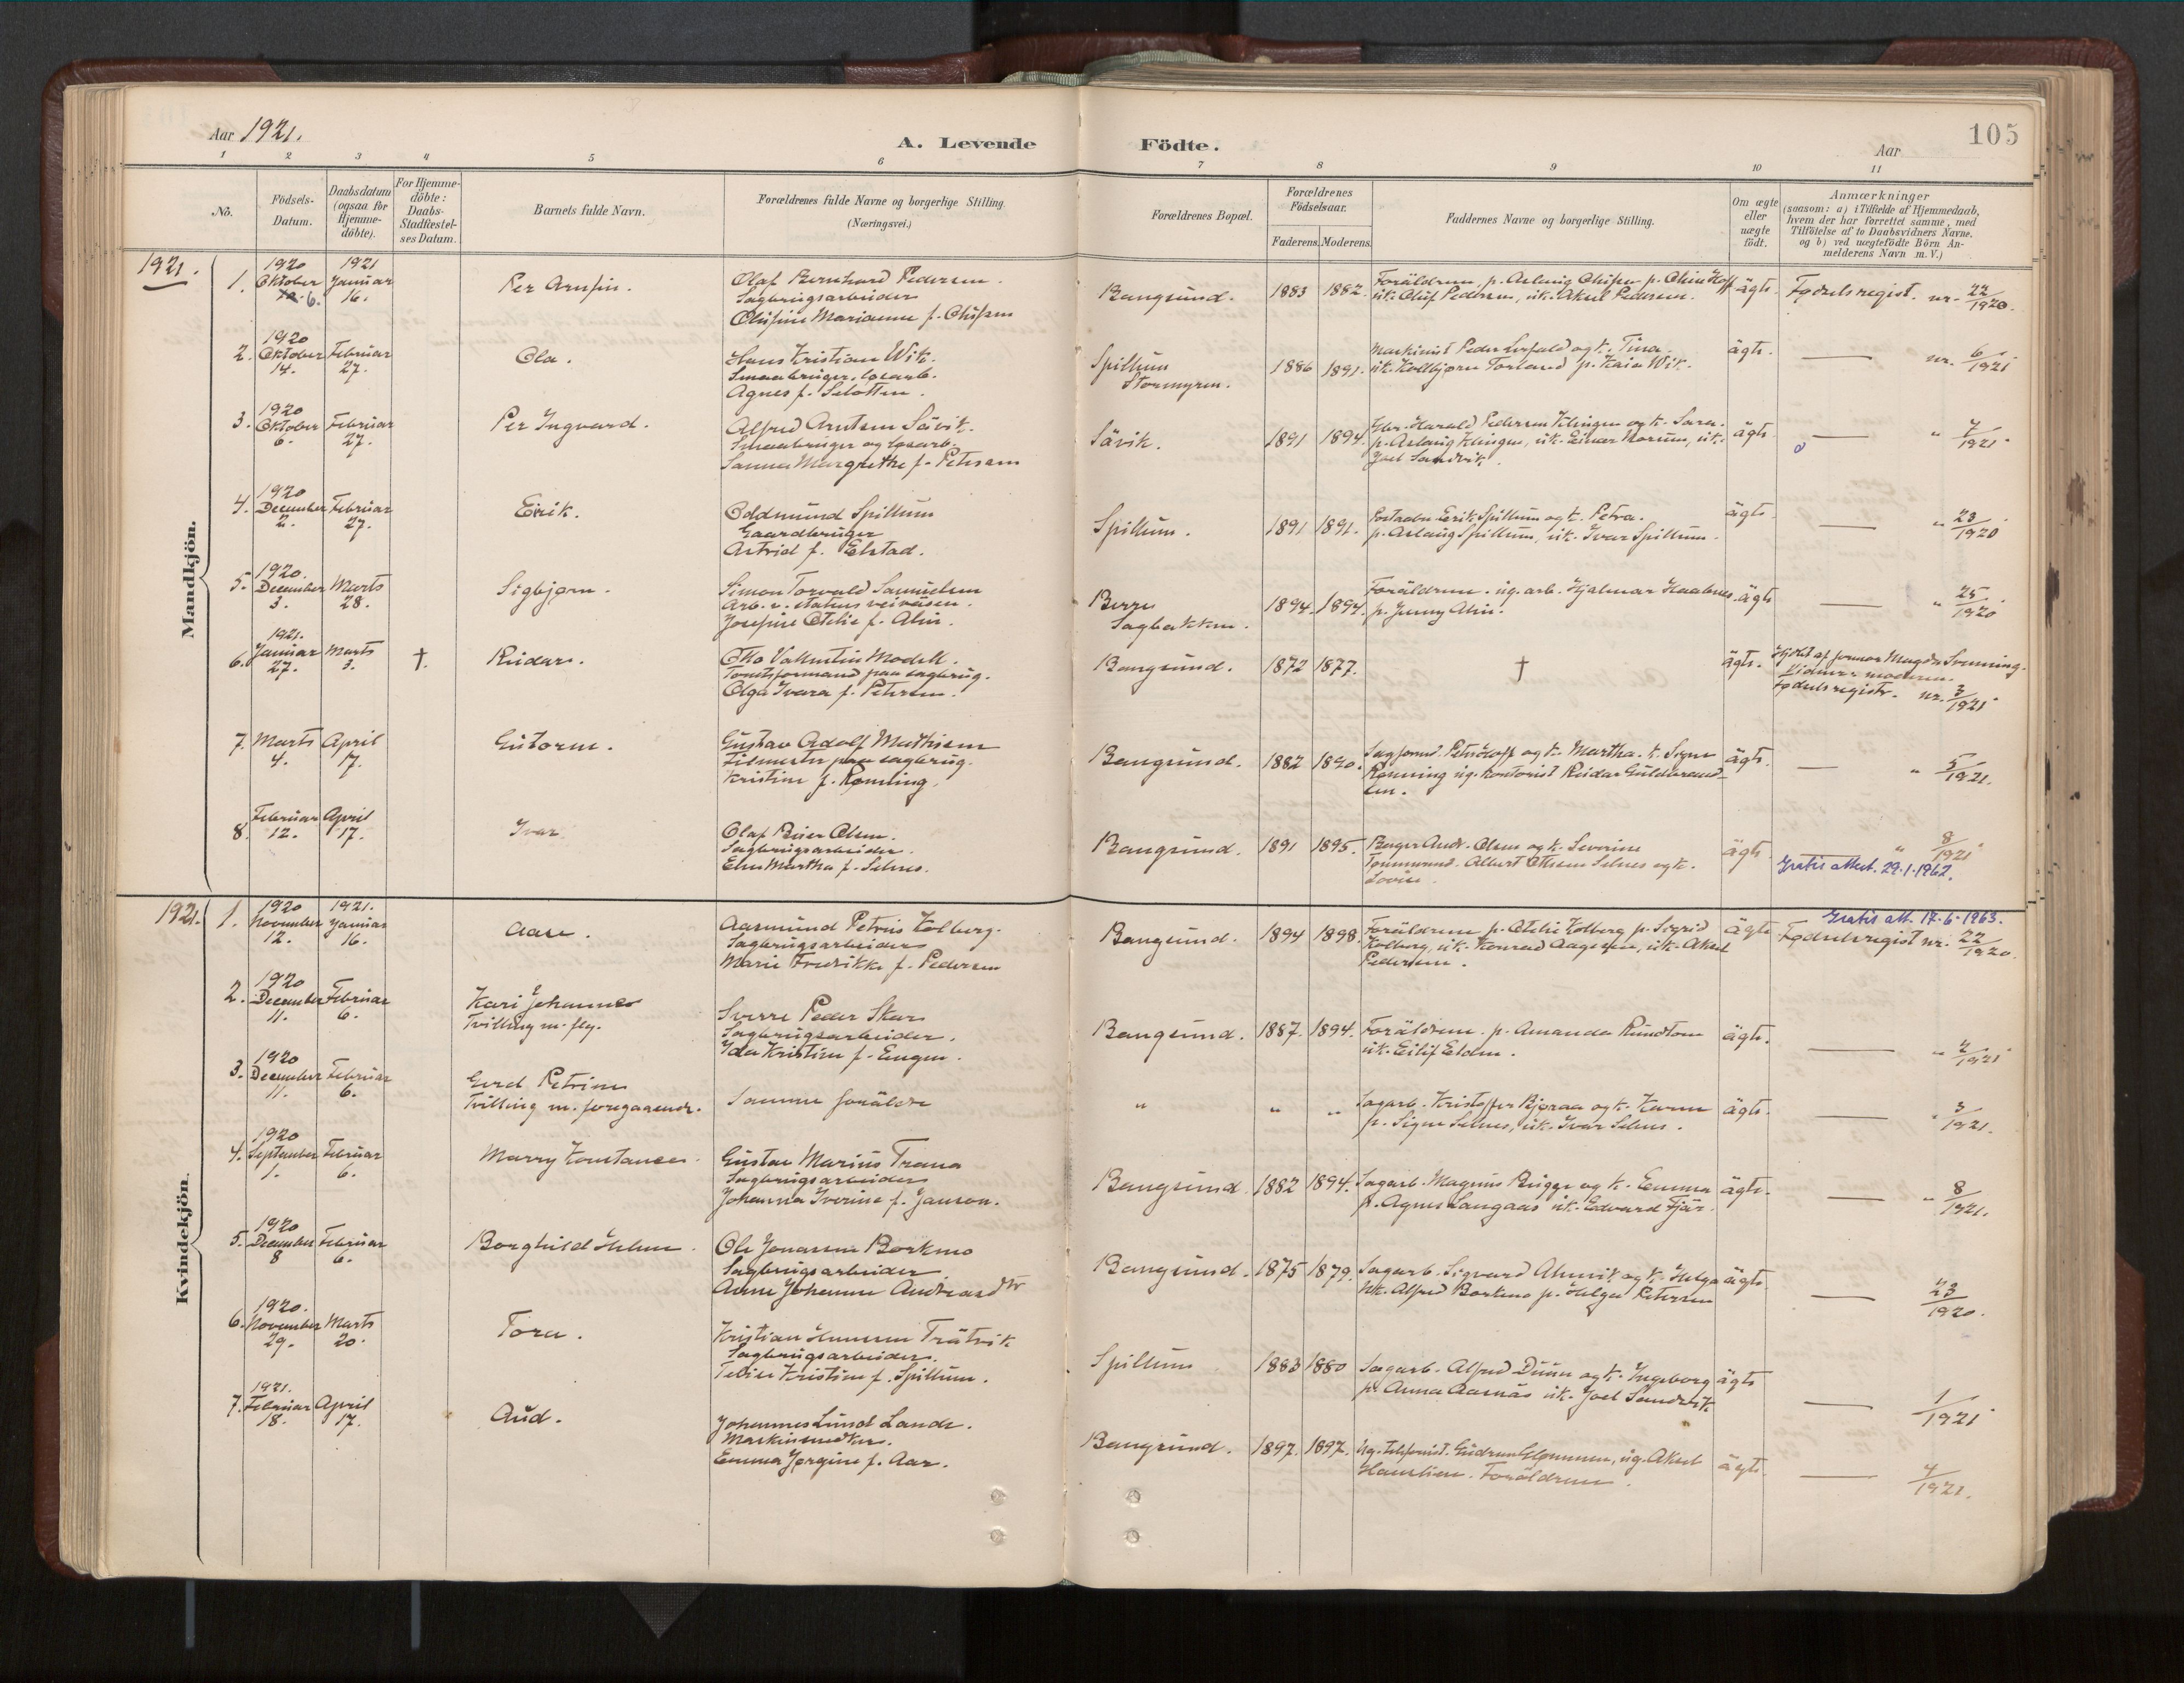 Aar 1921.
A. Levende Födte.
Aar
105
1 2 3 4 5 6 7 8 9 10 11
No.
Födsels-Datum.
Daabsdatum (ogsaa for Hjemme-döbte).
For Hjemme-döbte: Daabs-Stadfæstel-ses Datum.
Barnets fulde Navn.
Forældrenes fulde Navne og borgerlige Stilling.
(Næringsvei.)
Forældrenes Bopæl.
Forældrenes Födselsaar.
Faderens. Moderens.
Faddernes Navne og borgerlige Stilling.
Om ægte eller uægte födt.
Anmærkninger
(saasom: a) i Tilfælde af Hjemmedaab,
hvem der har forrettet samme, med
Tilföielse af to Daabsvidners Navne,
og b) ved uægtefödte Börn An-
melderens Navn m. V.)
Mandkjön.
1921.
1. 1920 Oktober 6. 1921 Januar 16.
Per Arnfin.
Olaf Bernhard Pedersen.
Sagbrugsarbeider
Olufine Marianne f. Olufsen
Bangsund. 1883 1882.
Foräldrene, p. Aslaug Olufsen p. Oline Hoff
uk. Oluf Pedersen, uk. Aksel Pedersen.
ägte. Fødselsregist. nr. 22/1920.
2. 1920 Oktober 14. Februar 27.
Ola.
Hans Kristian Wik.
Smaabruger, løsarb.
Agnes f. Slotten.
Spillum
Stormyren.
1886 1891.
Maskinist Peder Lerfald og k. Tina.
uk. Kolbjørn Forland p. Kaia Wik.
ägte. — nr. 6/1921
3. 1920 Oktober 6. Februar 27.
Per Ingvard.
Alfred Arntsen Sävik.
Smaabruger og løsarb.
Sanna Margrethe f. Petersen
Sävik. 1891 1894.
Gbr. Harald Pedersen Klingen og k. Sara.
p. Aslaug Klingen, uk. Einar Morum, uk.
Joel Sandvik.
ägte — " 7/1921.
4. 1920 December 2. Februar 27.
Erik.
Oddmund Spillum
Gaardbruger
Astrid f. Elstad.
Spillum. 1891 1891.
Erik Spillum og k. Petra.
p. Aslaug Spillum, uk. Ivar Spillum.
ägte. — " 23/1920
5. 1920. December 3. Marts 28.
Sigbjørn.
Simon Torvald Samuelsen
Arb. v. statens veiväsen.
Josefine Otelie f. Alin.
Berre
Sagbakken.
1894. 1894.
Foräldrene. ug. arb. Hjalmar Haabnes.
p. Jenny Alin.
ägte — " 25/1920
6. 1921. Januar 27. Marts 3. †.
Reidar.
Otto Valentin Modell.
Tomtsformand paa sagbrug.
Olga Ivara f. Petersen.
Bangsund. 1872 1877.
†
ägte. Hjdbt af jormor Magda Svenning.
Vidner moderen.
Fødselsregistr. nr. 3/1921
7. Marts 4. April 17.
Gutorm.
Gustav Adolf Mathisen
Filmester paa sagbrug.
Kristine f. Rømling.
Bangsund. 1882 1890.
Sagformd. Peter Hoff og k. Martha. k. Signe
Rønning ug. Kontorist Reidar Guldbrand-
sen.
ägte. — " 5/1921.
8. Februar 12. April 17.
Ivar
Olaf Beier Olsen.
Sagbrugsarbeider.
Elen Martha f. Selnes.
Bangsund. 1891 1895.
Bager Andr. Olsen og k. Severine
Tømmermd. Albert Ottesen Selnes og k.
Lovise.
ägte. " 8/1921
Gratis attest. 29.1.1962.
Kvindekjön.
1921. 1. 1920 November 12. 1921. Januar 16.
Aase.
Aasmund Petrus Kolberg.
Sagbrugsarbeider
Marie Fredrikke f. Pedersen
Bangsund. 1894 1898.
Foräldrene p. Otelie Kolberg p. Sigrid
Kolberg, uk. Konrad Aagesen, uk. Aksel
Pedersen.
ägte Gratis att. 17.6.1963.
Fødselsregist nr. 22/1920.
2. 1920 December 11. Februar 6.
Kari Johanne
Tvilling m. flg.
Sverre Peder Skar
Sagbrugsarbeider.
Ida Kristine f. Engen.
Bangsund. 1887. 1894.
Foräldrene. p. Amanda Rundtom
uk. Eilif Elden.
ägte. — " 2/1921
3. 1920 December 11. Februar 6.
Gerd Petrine
Tvilling m. foregaaende.
Samme foräldre
" " "
Sagarb. Kristoffer Bjøraa og k. Karen
p. Signe Selnes, uk. Ivar Selnes.
ägte. — " 3/1921.
4. 1920 September 1. Februar 6.
Marry Konstance.
Gustav Marius Trana
Sagbrugsarbeider
Johanna Iverine f. Janson.
Bangsund. 1882 1894.
Sagarb. Magnus Brigge og k. Emma
p. Agnes Langaas uk. Edvard Fjär.
ägte. — " 8/1921.
5. 1920 December 8 Februar 6.
Borghild Helene.
Ole Jonassen Borkmo
Sagbrugsarbeider
Anne Johanne Andreasdtr
Bangsund. 1875 1879.
Sagarb. Sigvard Almvik og k. Helga
uk. Alfred Borkmo p. Helga Petersen
ägte. — 23/1920.
6. 1920. November 29. Marts 20.
Tora.
Kristian Hansen Trätvik
Sagbrugsarbeider.
Kristine f. Spillum.
Spillum 1883 1880
Sagarb. Alfred Duun og k. Ingeborg
p. Anna Aarnäs uk. Joel Sandvik
ägte — 1/1921
7. 1921. Februar 18. April 17.
Aud.
Johannes Lund Lande.
Maskinsnedker.
Emma Jørgine f. Aar.
Bangsund. 1897. 1897.
ug. telefonist. Gudrun Glømmen, ug. Aksel
Haustien. Foräldrene.
ägte. — 4/1921.